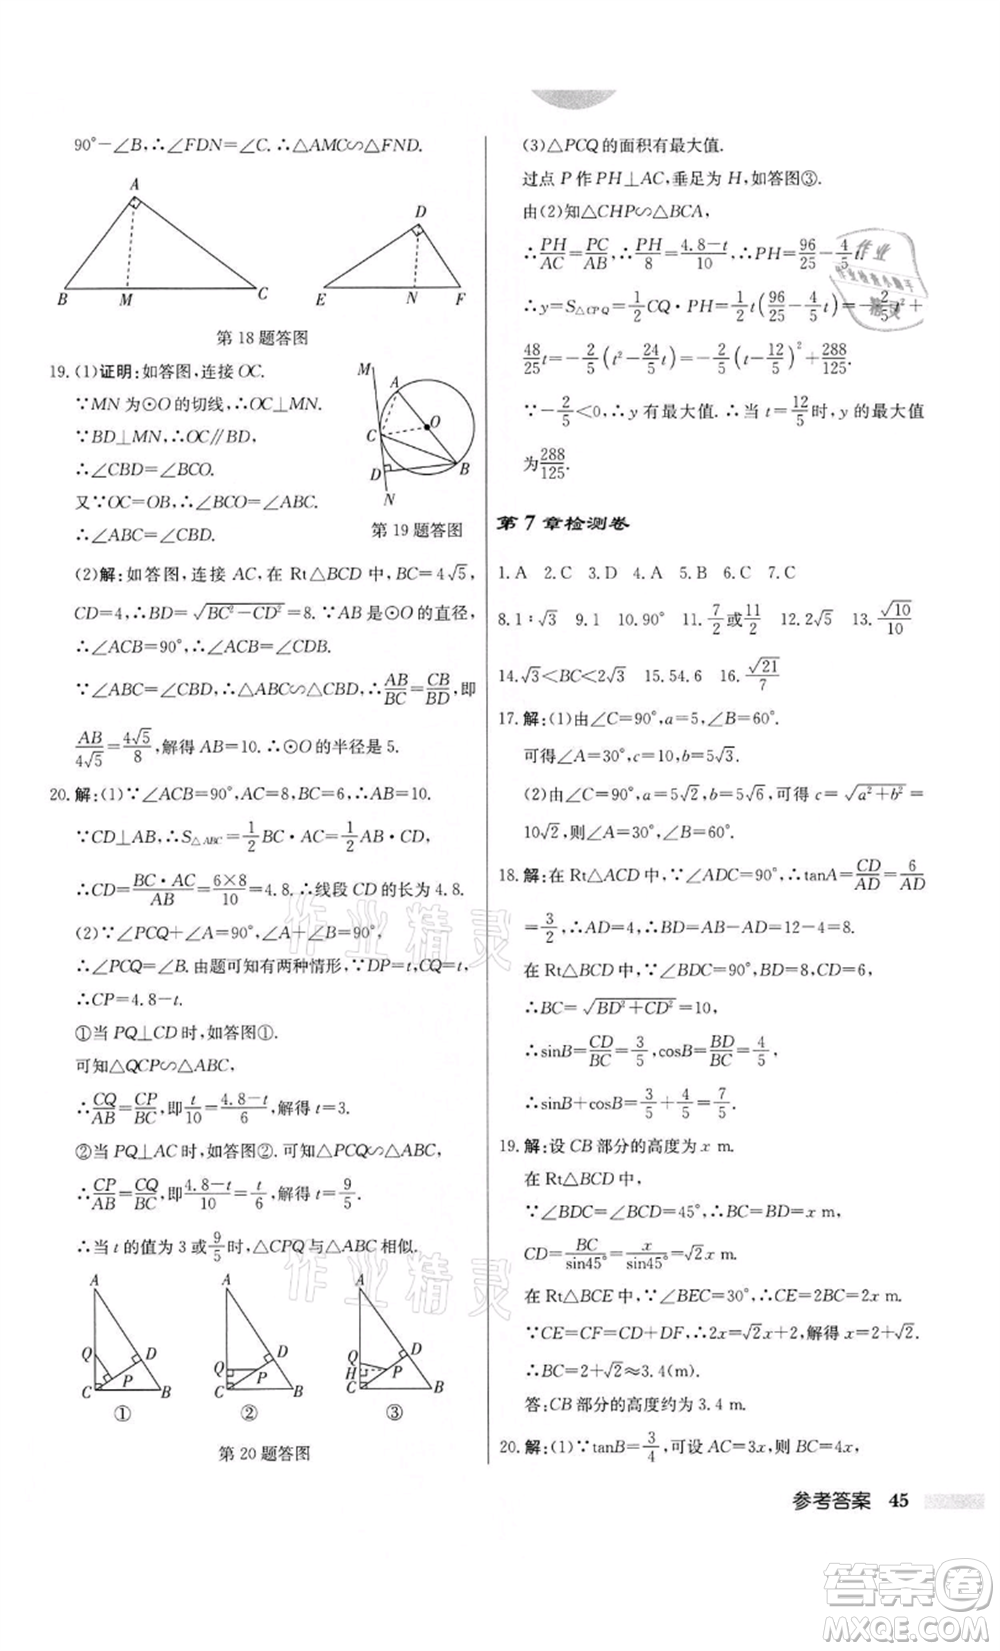 90°－∠B,∴∠FDN＝∠C.∴△AMC∽△FND.
A
B
M
C
D
E
N
F
第 18 题答图
19.(1)证明:如答图,连接 OC.
∵MN 为⊙O 的切线,∴OC⊥MN.
∵BD⊥MN,∴OC∥BD,
∴∠CBD＝∠BCO.
又∵OC＝OB,∴∠BCO＝∠ABC,
∴∠ABC＝∠CBD.
M
A
O
C
D
B
N
第 19 题答图
(2)解:如答图,连接 AC,在 Rt△BCD 中,BC＝4√5,
CD＝4,∴BD＝√(BC²－CD²)＝8.∵AB 是⊙O 的直径,
∴∠ACB＝90°,∴∠ACB＝∠CDB.
∵∠ABC＝∠CBD,∴△ABC∽△CBD,∴AB/BC＝CB/BD,即
AB/4√5＝4√5/8,解得 AB＝10.∴⊙O 的半径是 5.
20.解:(1)∵∠ACB＝90°,AC＝8,BC＝6,∴AB＝10.
∵CD⊥AB,∴S△ABC＝1/2 BC·AC＝1/2 AB·CD,
∴CD＝BC·AC/AB＝6×8/10＝4.8.∴线段 CD 的长为 4.8.
(2)∵∠PCQ＋∠A＝90°,∠A＋∠B＝90°,
∴∠PCQ＝∠B.由题可知有两种情形,∵DP＝t,CQ＝t,
∴CP＝4.8－t.
①当 PQ⊥CD 时,如答图①.
可知△QCP∽△ABC,
∴CQ/AB＝CP/BC,即t/10＝4.8－t/6,解得 t＝3.
②当 PQ⊥AC 时,如答图②.可知△PCQ∽△ABC,
∴CP/AB＝CQ/BC,即4.8－t/10＝t/6,解得 t＝9/5.
∴当 t 的值为 3 或9/5时,△CPQ 与△ABC 相似.
A
Q
D
P
C
B
①
A
Q
D
P
C
B
②
A
Q
H
D
P
C
B
③
第 20 题答图
(3)△PCQ 的面积有最大值.
过点 P 作 PH⊥AC,垂足为 H,如答图③.
由(2)知△CHP∽△BCA,
∴PH/AC＝PC/AB,∴PH/8＝4.8－t/10,∴PH＝96/25－4/5 t,
∴y＝S△CPQ＝1/2 CQ·PH＝1/2 t(96/25－4/5 t)＝－2/5 t²＋
48/25 t＝－2/5(t²－24/5 t)＝－2/5(t－12/5)²＋288/125.
∵－2/5＜0,∴y 有最大值.∴当 t＝12/5时,y 的最大值
为288/125.
第 7 章检测卷
1.A 2.C 3.D 4.A 5.B 6.C 7.C
8.1∶√3 9.1 10.90° 11.7/2或11/2 12.2√5 13.√10/10
14.√3＜BC＜2√3 15.54.6 16.√21/7
17.解:(1)由∠C＝90°,a＝5,∠B＝60°.
可得∠A＝30°,c＝10,b＝5√3.
(2)由∠C＝90°,a＝5√2,b＝5√6,可得 c＝√(a²＋b²)＝
10√2,则∠A＝30°,∠B＝60°.
18.解:在 Rt△ACD 中,∵∠ADC＝90°,∴tanA＝CD/AD＝6/AD
＝3/2,∴AD＝4,∴BD＝AB－AD＝12－4＝8.
在 Rt△BCD 中,∵∠BDC＝90°,BD＝8,CD＝6,
∴BC＝√(BD²＋CD²)＝10,
∴sinB＝CD/BC＝3/5,cosB＝BD/BC＝4/5,
∴sinB＋cosB＝3/5＋4/5＝7/5.
19.解:设 CB 部分的高度为 x m.
在 Rt△BCD 中,
∵∠BDC＝∠BCD＝45°,∴BC＝BD＝x m,
CD＝BC/sin45°＝x/sin45°＝√2x m.
在 Rt△BCE 中,∵∠BEC＝30°,∴CE＝2BC＝2x m.
∵CE＝CF＝CD＋DF,∴2x＝√2x＋2,解得 x＝2＋√2.
∴BC＝2＋√2≈3.4(m).
答:CB 部分的高度约为 3.4 m.
20.解:(1)∵tanB＝3/4,可设 AC＝3x,则 BC＝4x,
参考答案 45
作业精灵
作业精灵
答案圈
MXQE.COM